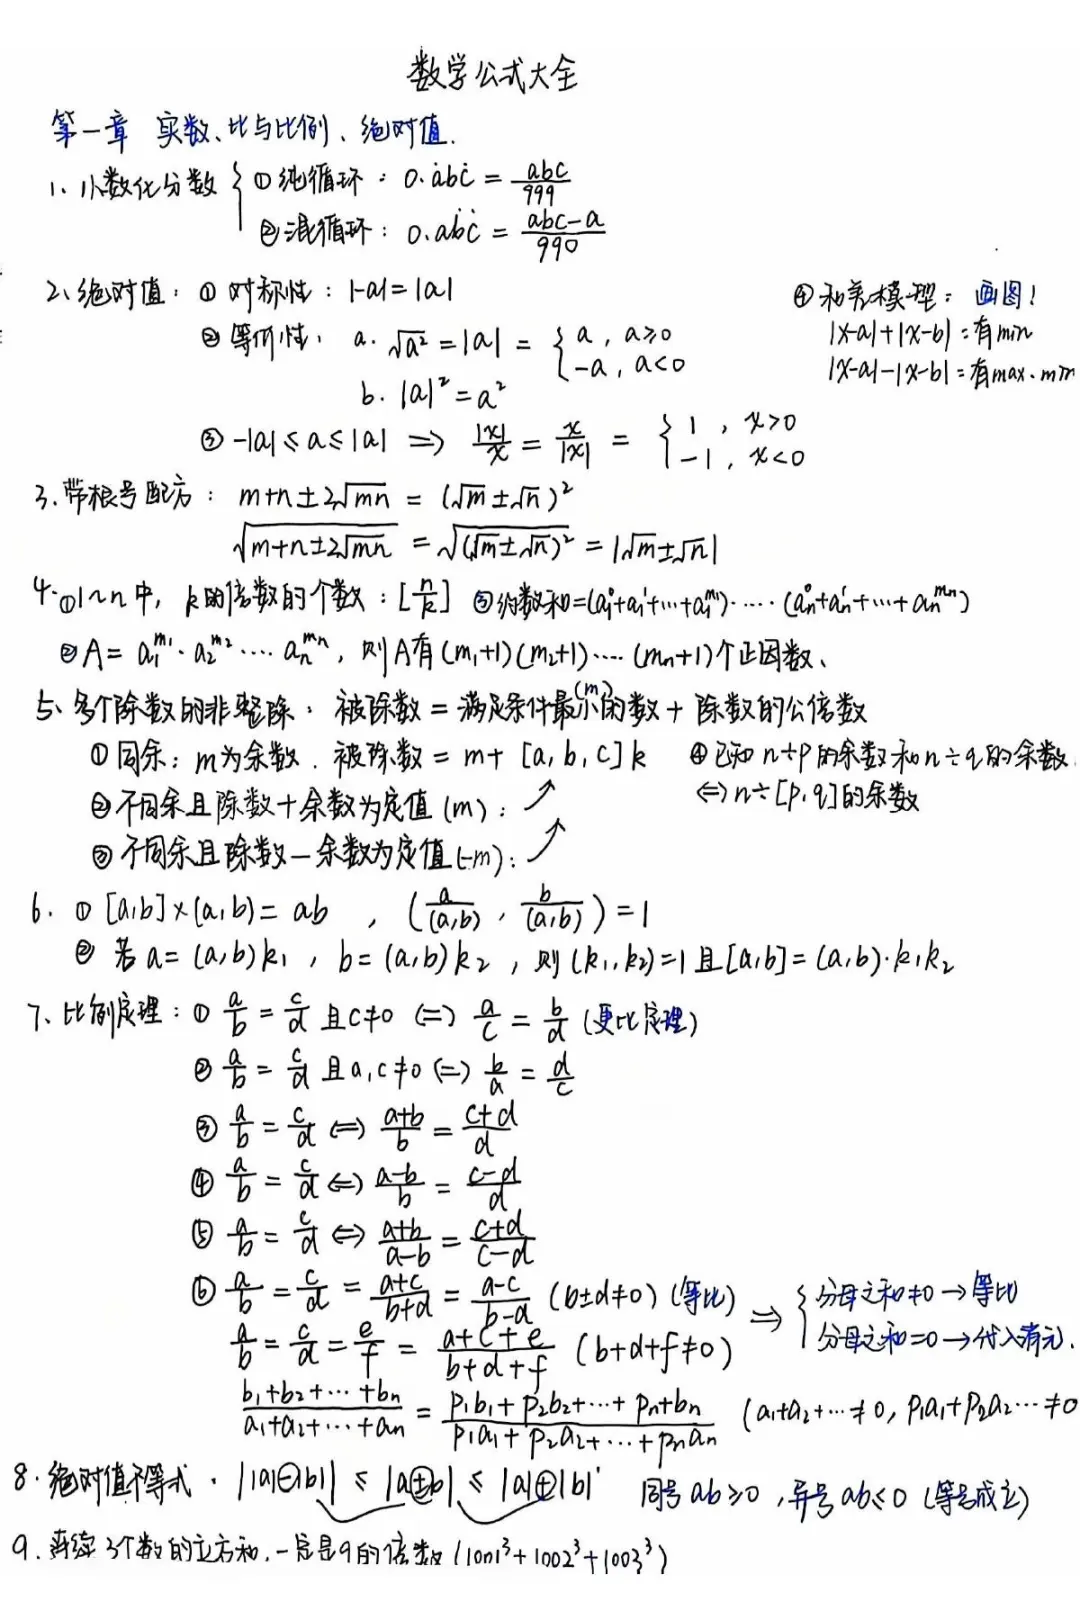 数学公式大全
第一章 实数、比与比例、绝对值.
1. 小数化分数 { ① 纯循环: 0.ȧbċ = abc/999
② 混循环: 0.aḃċ = abc-a/990
2、绝对值: ① 对称性: |-a|=|a|
④ 和差模型: 画图!
② 等价性: a. √a² = |a| = { a, a≥0
-a, a<0
|x-a|+|x-b|=有min
|x-a|-|x-b|=有max.min
b. |a|² = a²
③ -|a| ≤ a ≤ |a| ⇒ |x|/x = x/|x| = { 1, x>0
-1, x<0
3. 带根号配方: m+n±2√mn = (√m±√n)²
√(m+n±2√mn) = √((√m±√n)²) = |√m±√n|
4. ①1~n中, k的倍数的个数: [n/k] ③约数和=(a₁⁰+a₁¹+…+a₁^m₁)·…·(aₙ⁰+aₙ¹+…+aₙ^mₙ)
② A = a₁^m₁·a₂^m₂·…·aₙ^mₙ, 则A有(m₁+1)(m₂+1)…(mₙ+1)个正因数、
5、多个除数的非整除: 被除数=满足条件最小的数(m)+除数的公倍数
① 同余: m为余数. 被除数=m+[a,b,c]k ④ 已知n÷p的余数和n÷q的余数.
② 不同余且除数+余数为定值(m): ↗ ⇔ n÷[p,q]的余数
③ 不同余且除数-余数为定值(-m): ↗
6. ① [a,b]×(a,b)=ab , (a/(a,b), b/(a,b))=1
② 若a=(a,b)k₁, b=(a,b)k₂, 则(k₁,k₂)=1且[a,b]=(a,b)·k₁k₂
7、比例定理: ① a/b = c/d 且c≠0 ⇔ a/c = b/d (更比定理)
② a/b = c/d 且a,c≠0 ⇔ b/a = d/c
③ a/b = c/d ⇔ a+b/b = c+d/d
④ a/b = c/d ⇔ a-b/b = c-d/d
⑤ a/b = c/d ⇔ a+b/a-b = c+d/c-d
⑥ a/b = c/d = a+c/b+d = a-c/b-d (b±d≠0) (等比) ⇒ { 分母之和≠0→等比
分母之和=0→代入消元.
a/b = c/d = e/f = a+c+e/b+d+f (b+d+f≠0)
b₁+b₂+…+bₙ/a₁+a₂+…+aₙ = p₁b₁+p₂b₂+…+pₙ+bₙ/p₁a₁+p₂a₂+…+pₙaₙ (a₁+a₂+…≠0, p₁a₁+p₂a₂…≠0
8. 绝对值不等式. ||a|⊖|b|| ≤ |a±b| ≤ |a|⊕|b| 同号ab≥0, 异号ab≤0 (等号成立)
9. 连续3个数的立方和, 一定是9的倍数 (1001³+1002³+1003³)